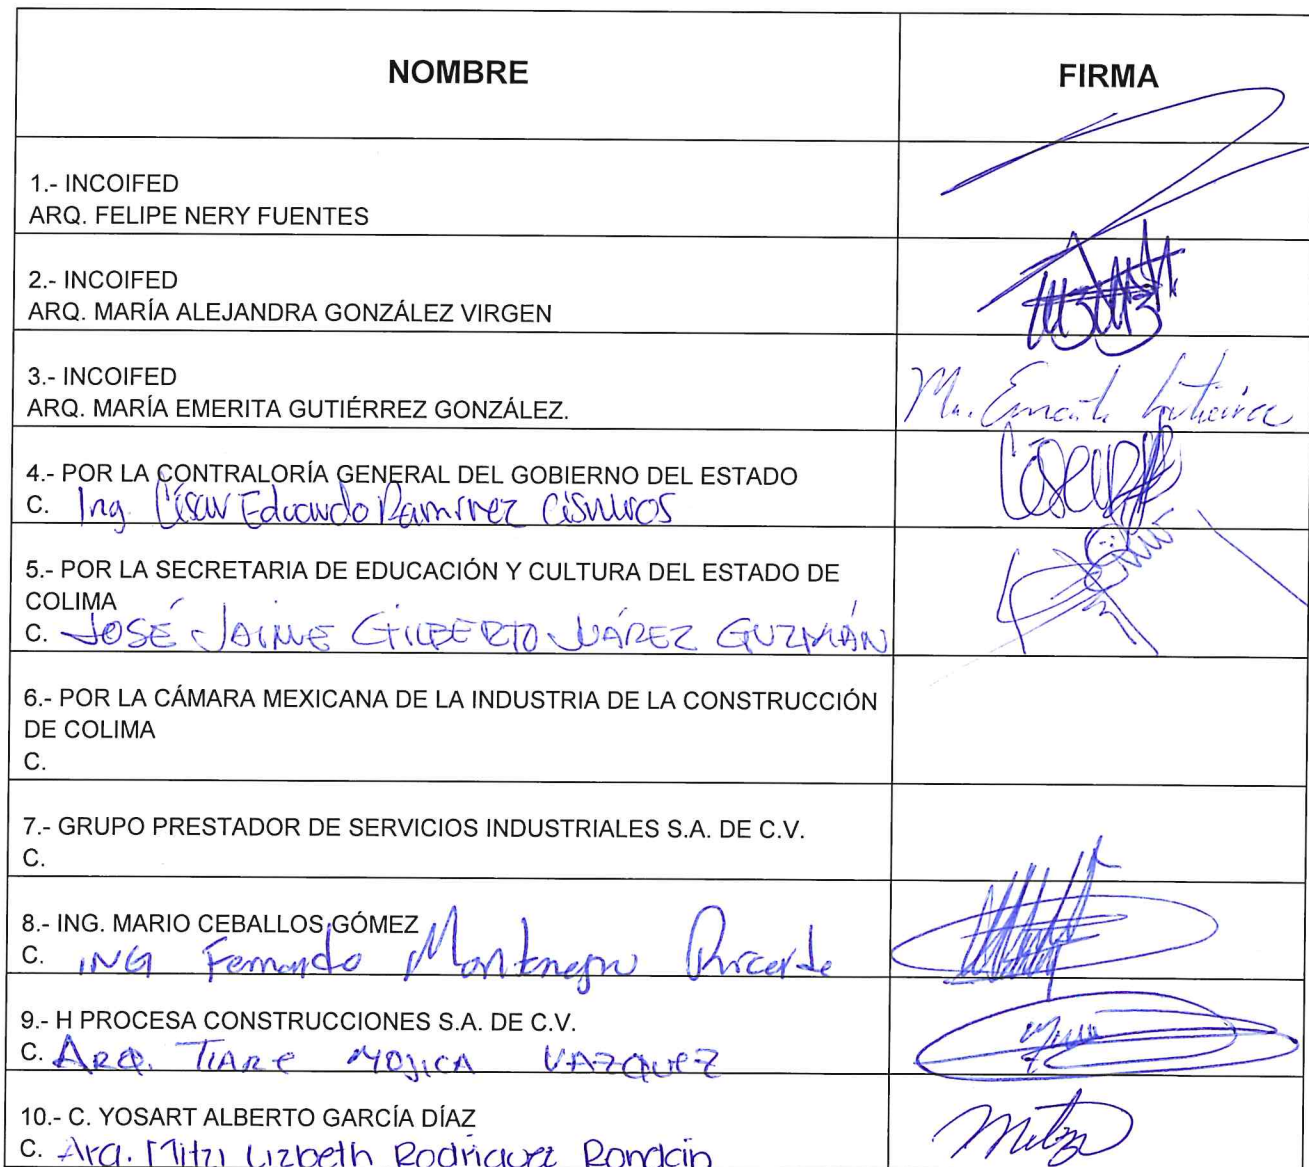 NOMBRE
FIRMA
1.- INCOIFED
ARQ. FELIPE NERY FUENTES
2.- INCOIFED
ARQ. MARÍA ALEJANDRA GONZÁLEZ VIRGEN
3.- INCOIFED
ARQ. MARÍA EMERITA GUTIÉRREZ GONZÁLEZ.
Ma. Emerita Gutiérrez
4.- POR LA CONTRALORÍA GENERAL DEL GOBIERNO DEL ESTADO
C. Ing. César Eduardo Ramírez Cisneros
5.- POR LA SECRETARIA DE EDUCACIÓN Y CULTURA DEL ESTADO DE
COLIMA
C. JOSÉ JAIME GILBERTO JUÁREZ GUZMÁN
6.- POR LA CÁMARA MEXICANA DE LA INDUSTRIA DE LA CONSTRUCCIÓN
DE COLIMA
C.
7.- GRUPO PRESTADOR DE SERVICIOS INDUSTRIALES S.A. DE C.V.
C.
8.- ING. MARIO CEBALLOS GÓMEZ
C. ING Fernando Montenegro
9.- H PROCESA CONSTRUCCIONES S.A. DE C.V.
C. ARQ. TIARE MOJICA VAZQUEZ
10.- C. YOSART ALBERTO GARCÍA DÍAZ
C. Arq. Mitzi Lizbeth Rodriguez